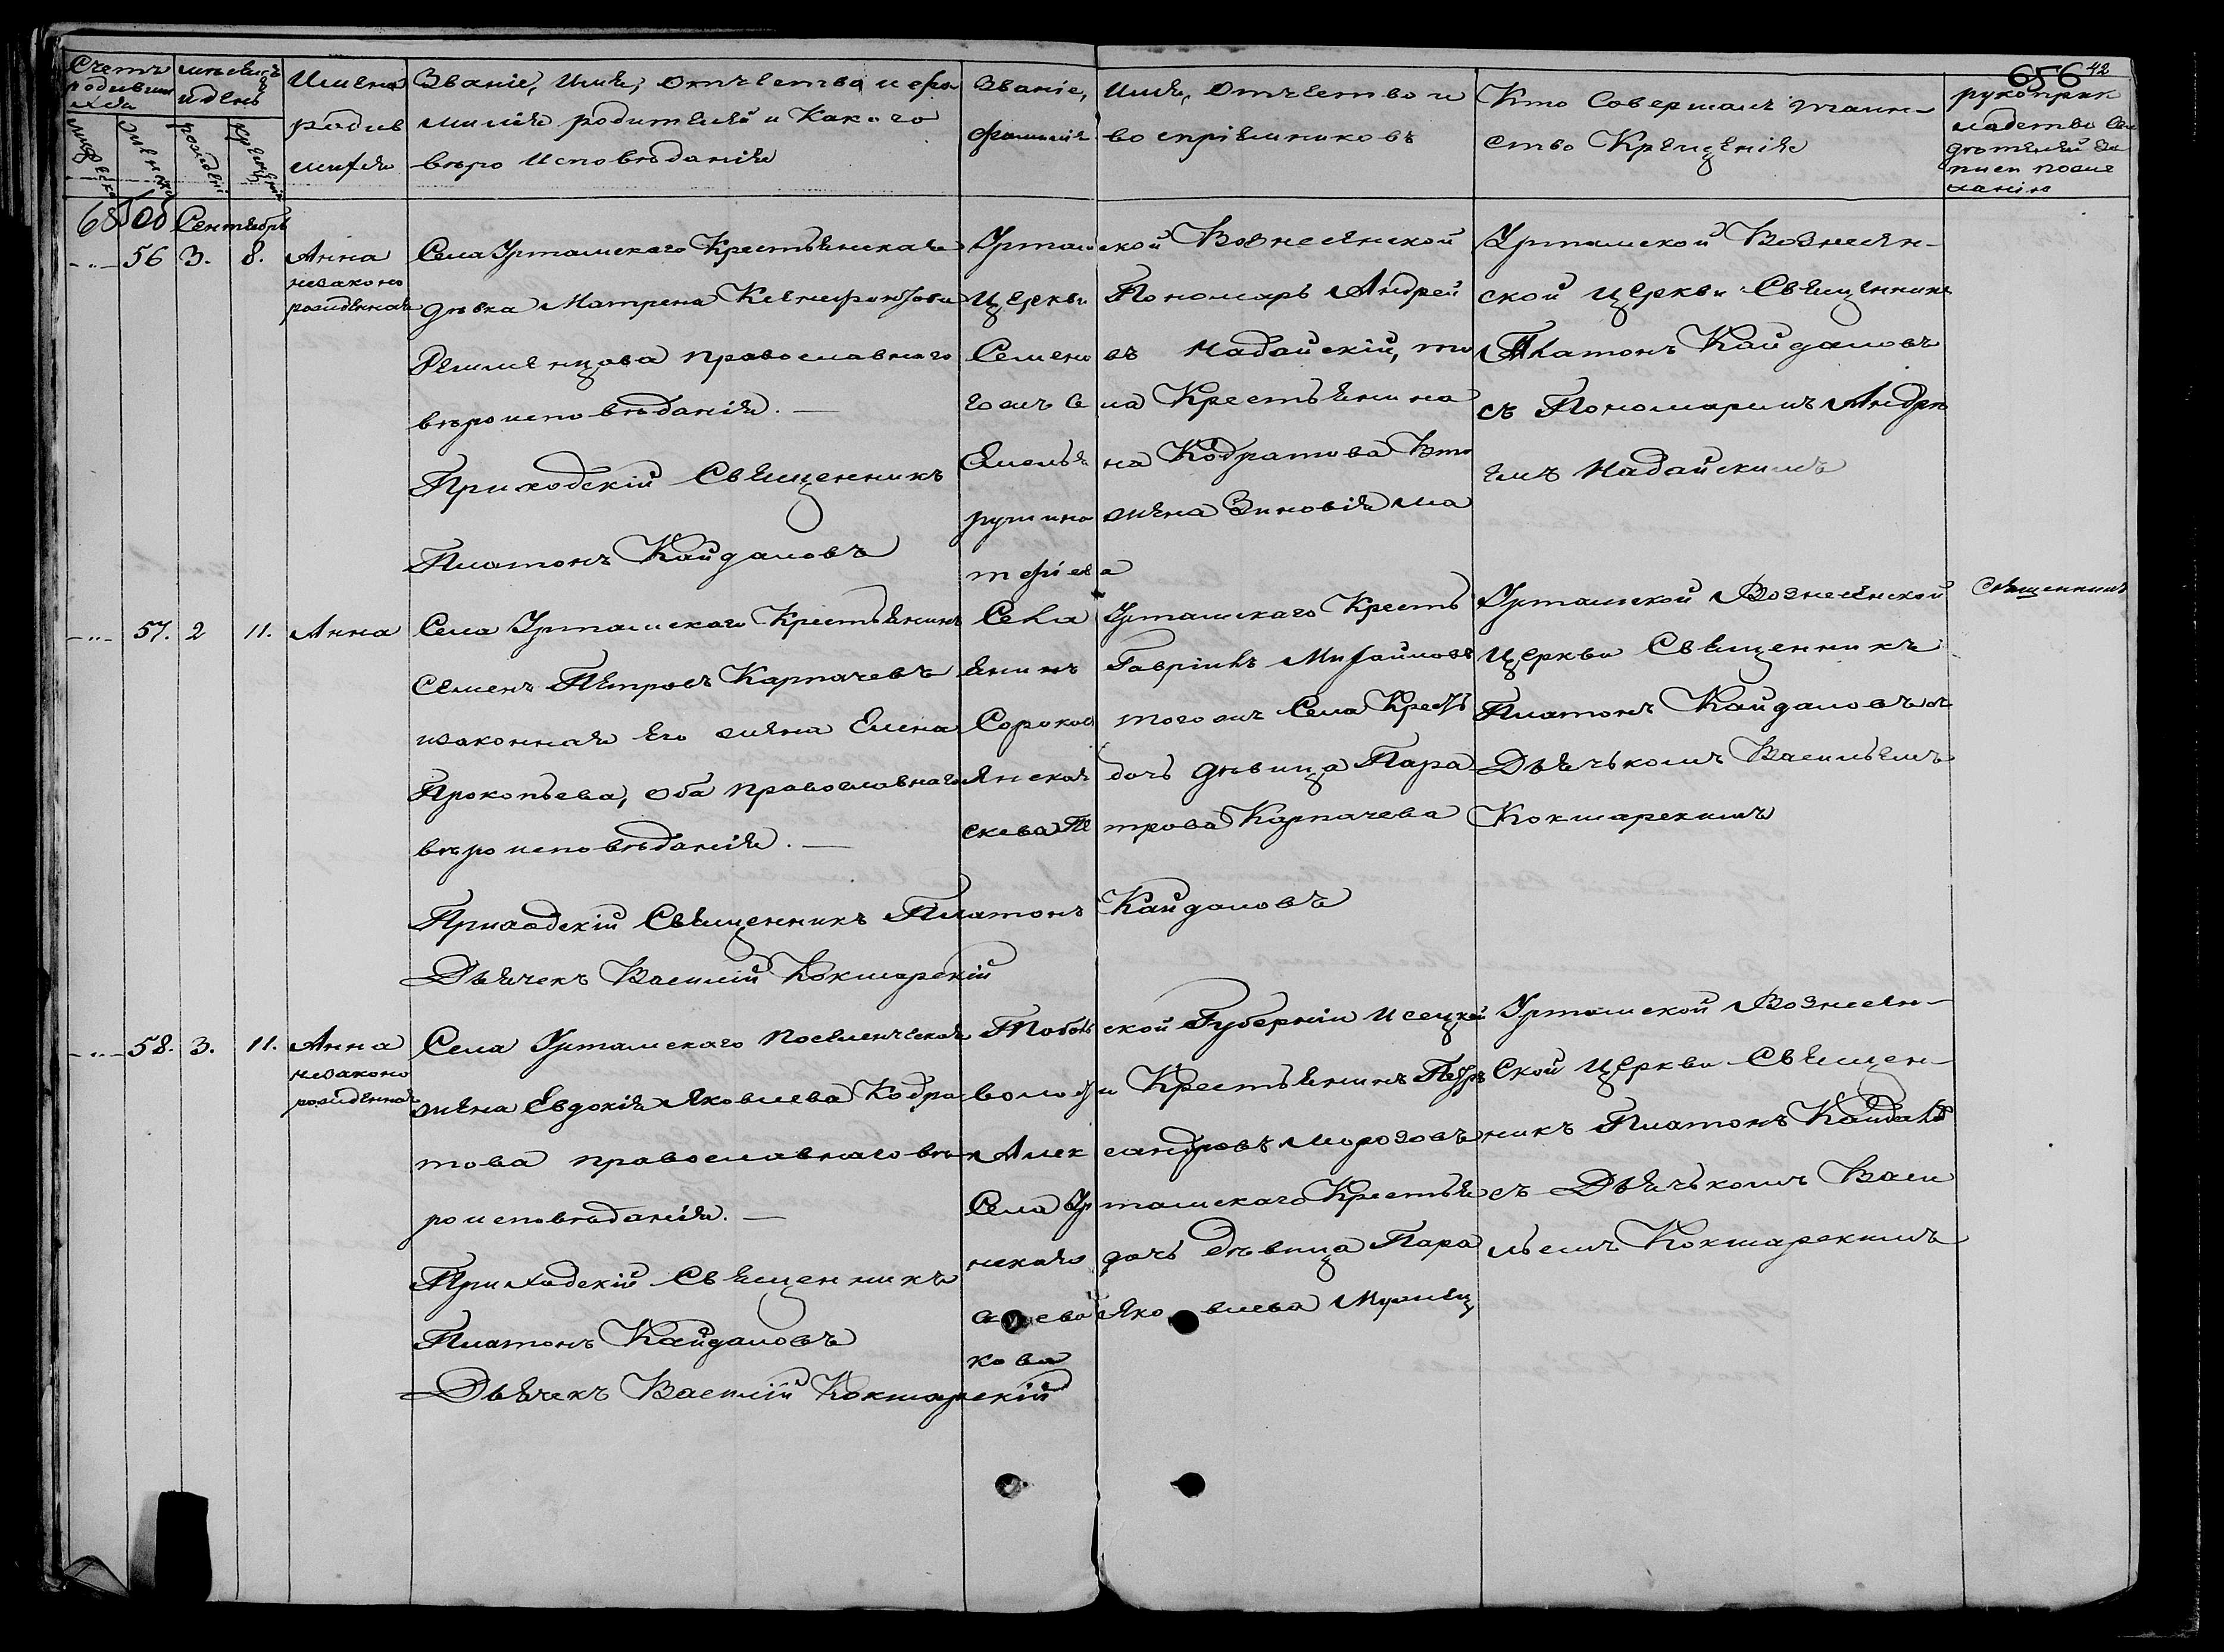 656 42
Счетъ родившихся
мужеска
женска
мѣсяцъ и день
рожденія
крещенія
Имена родившихся
Званіе, Имя, Отчество и фамилія родителей и Какого вѣроисповѣданія
Званіе, Имя, Отчество и фамилія воспріемниковъ
Кто Совершалъ таинство Крещенія
рукоприкладство Свидѣтелей записи по желанію
68 Об Сентябрь
-"- 56 3. 8. Анна
незаконорожденная
Села Уртамскаго Крестьянская
дѣвка Матрена Ксенофонтова
православнаго
вѣроисповѣданія.—
Приходскій Священникъ
Платонъ Кайдаловъ
Уртамской Вознесенской
Церкви Пономарь Андрей
Семеновъ Надайскій, то
гожъ села Крестьянина
Емельяна Кодратова Вто
рушина жена Зиновія Ма
тфіева
Уртамской Вознесен-
ской Церкви Священникъ
Платонъ Кайдаловъ
съ Пономаремъ Андре
емъ Надайскимъ
-"- 57. 2 11. Анна
Села Уртамскаго Крестьянинъ
Семенъ Петровъ Карпачевъ
изаконная Его жена Елена
Прокопьева, оба православнаго
вѣроисповѣданія.—
Приходскій Священникъ Платонъ Кайдаловъ
Дьячекъ Василій Кокшарскій
Села Уртамскаго Кресть
янинъ Гавріилъ Михайловъ
Сороков тогожъ Села Кресть
янская дочь дѣвица Пара
скева Петрова Карпачева
Уртамской Вознесенской
Церкви Священникъ
Платонъ Кайдаловъ съ
Дьячькомъ Васильемъ
Кокшарскимъ
Священникъ
-"- 58. 3. 11. Анна
незаконорожденная
Села Уртамскаго Поселенческая
жена Евдокія Яковлева Кодра
това православнаго вѣ
роисповѣданія.—
Приходскій Священникъ
Платонъ Кайдаловъ
Дьячекъ Василій Кокшарскій
Тобольской Губерніи Исецкой
волости Крестьянинъ Петръ
Александровъ Морозовъ
Села Уртамскаго Крестья
нская дочь дѣвица Пара
скева Яковлева Мурзец
кова
Уртамской Вознесен-
Ской Церкви Священ-
никъ Платонъ Кайдаловъ
съ Дьячькомъ Васи
льемъ Кокшарскимъ